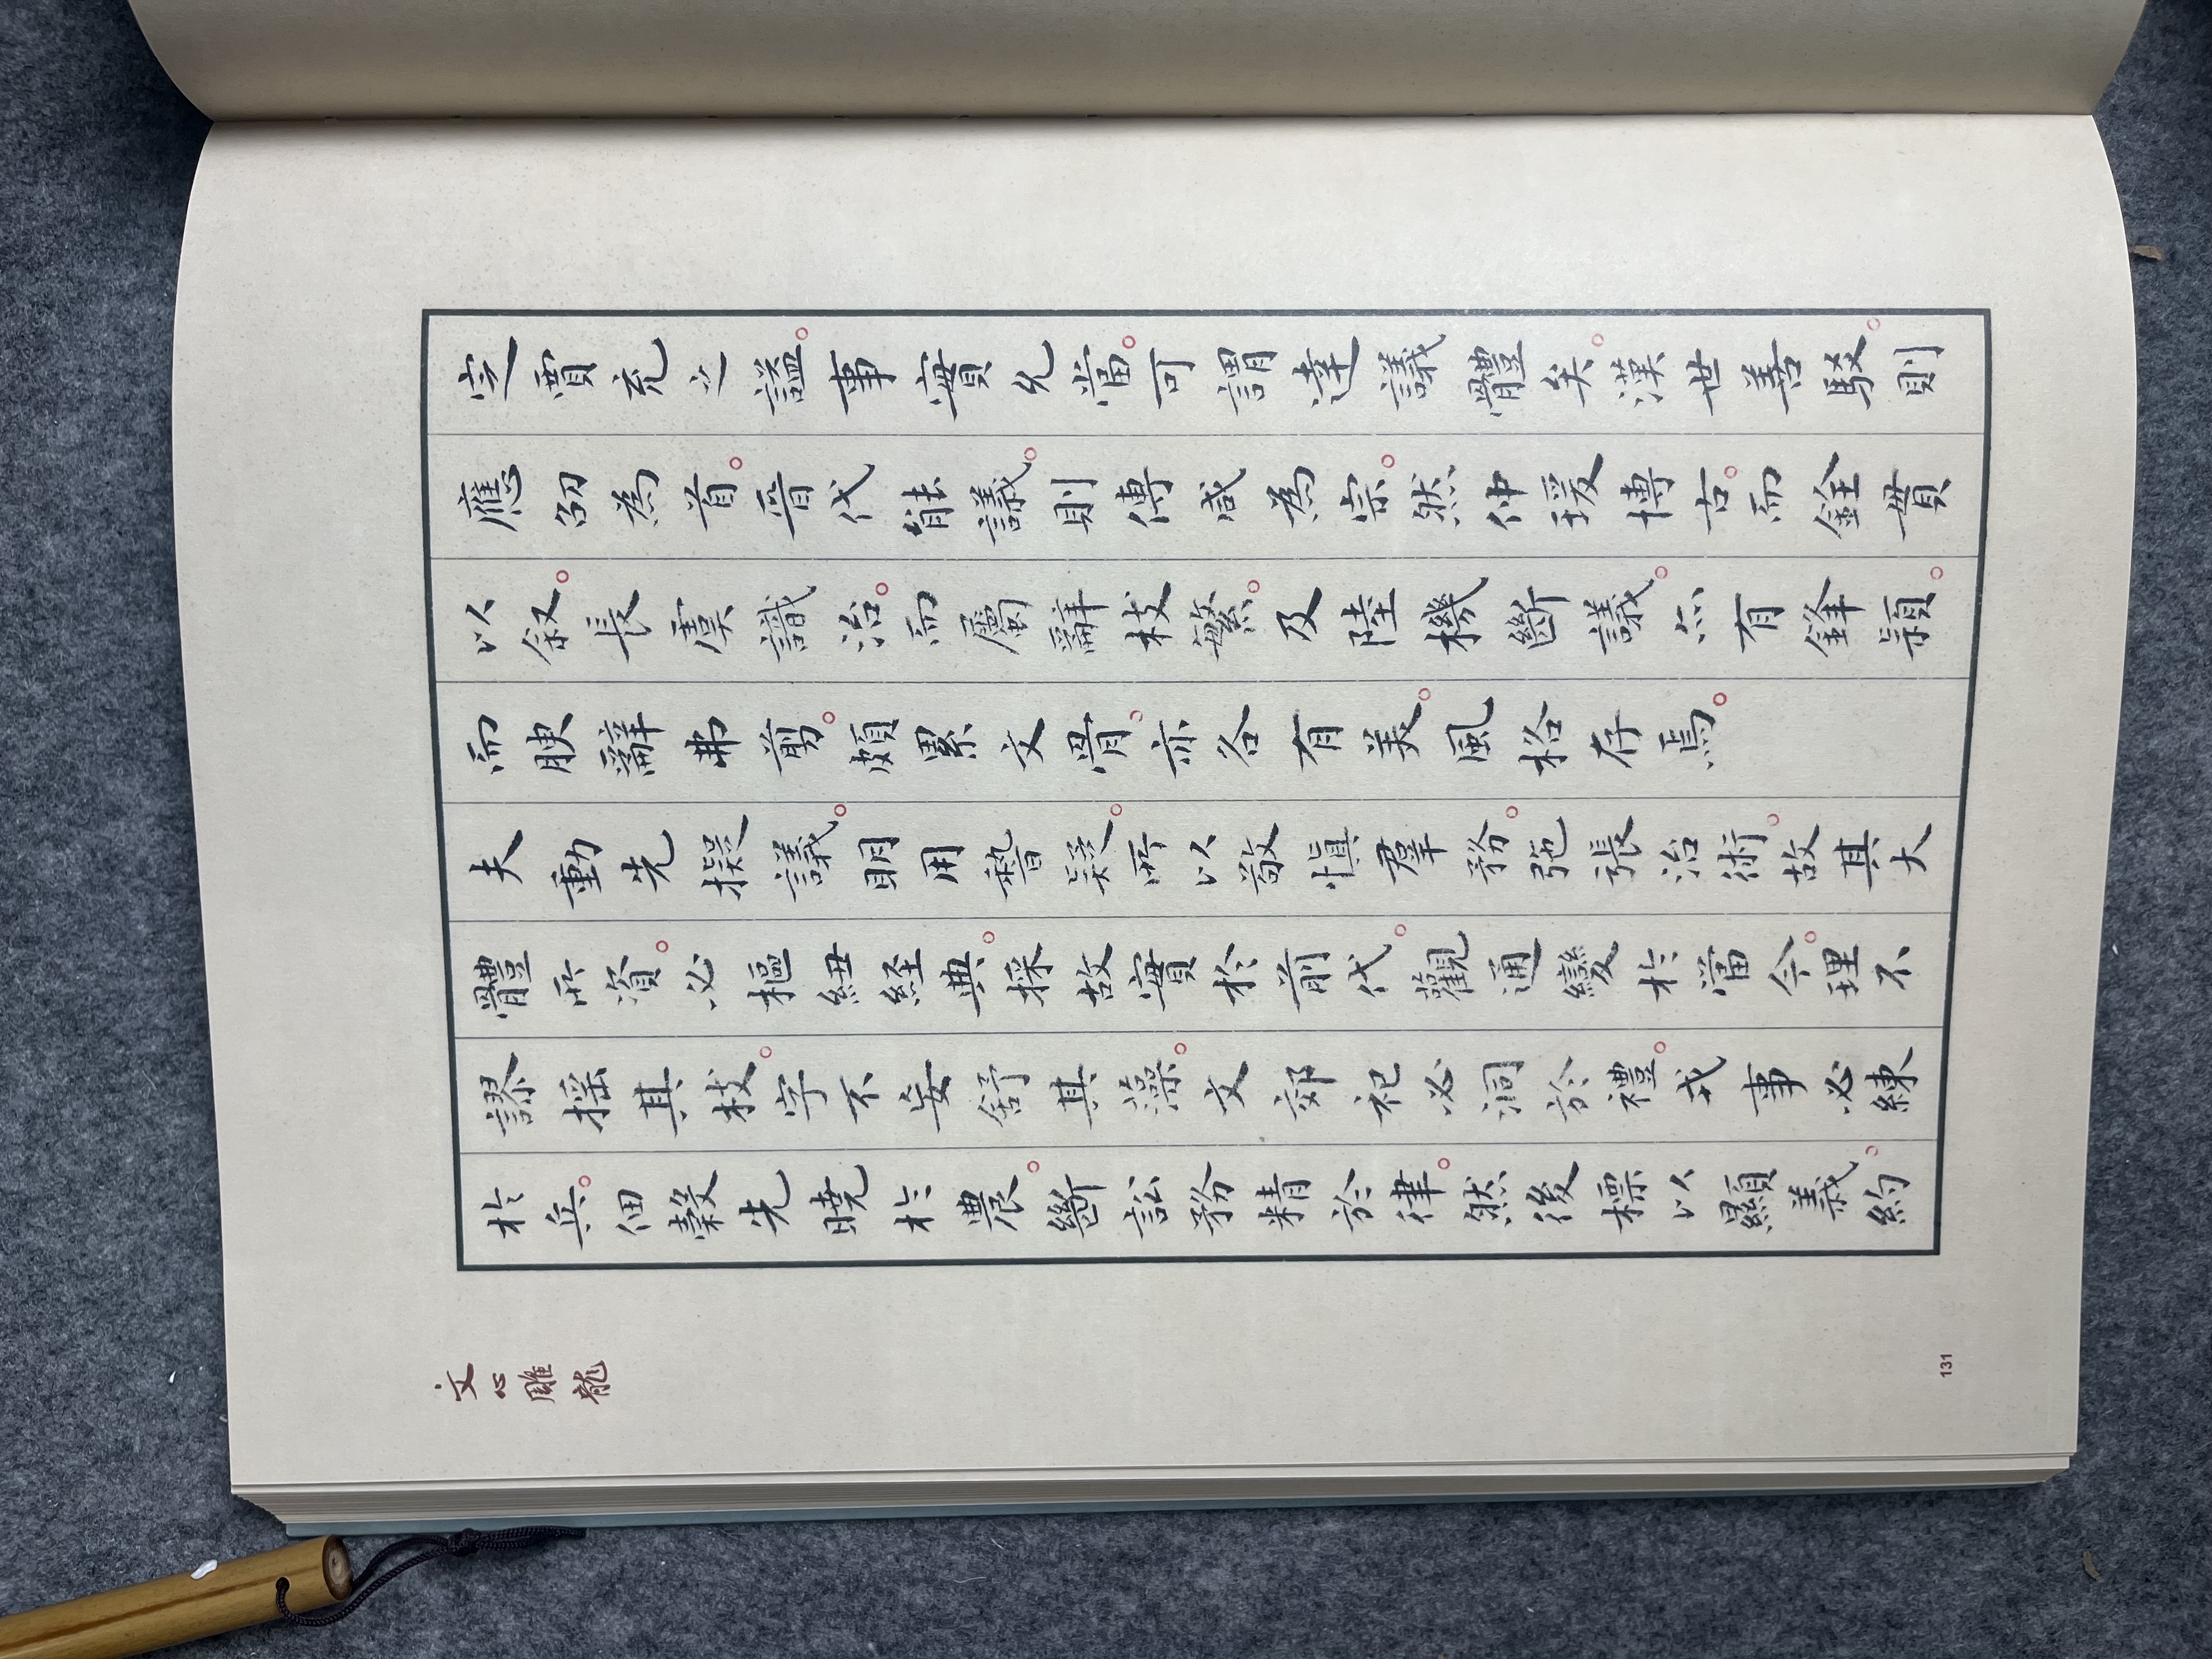 定賈充之諡。事實允當。可謂達議體矣。漢世善駁。則
應劭為首。晉代能議。則傅咸為宗。然仲瑗博古。而銓貫
以叙。長虞識治。而屬辭枝繁。及陸機斷議。亦有鋒穎。
而腴辭弗剪。頗累文骨。亦各有美。風格存焉。
夫動先擬議。明用稽疑。所以敬慎羣務。弛張治術。故其大
體所資。必樞紐経典。採故實於前代。觀通變於當今。理不
謬搖其枝。字不妄舒其藻。文郊祀必洞於禮。戎事必練
於兵。佃穀先曉於農。斷訟務精於律。然後標以顯義。約
文心雕龍
131